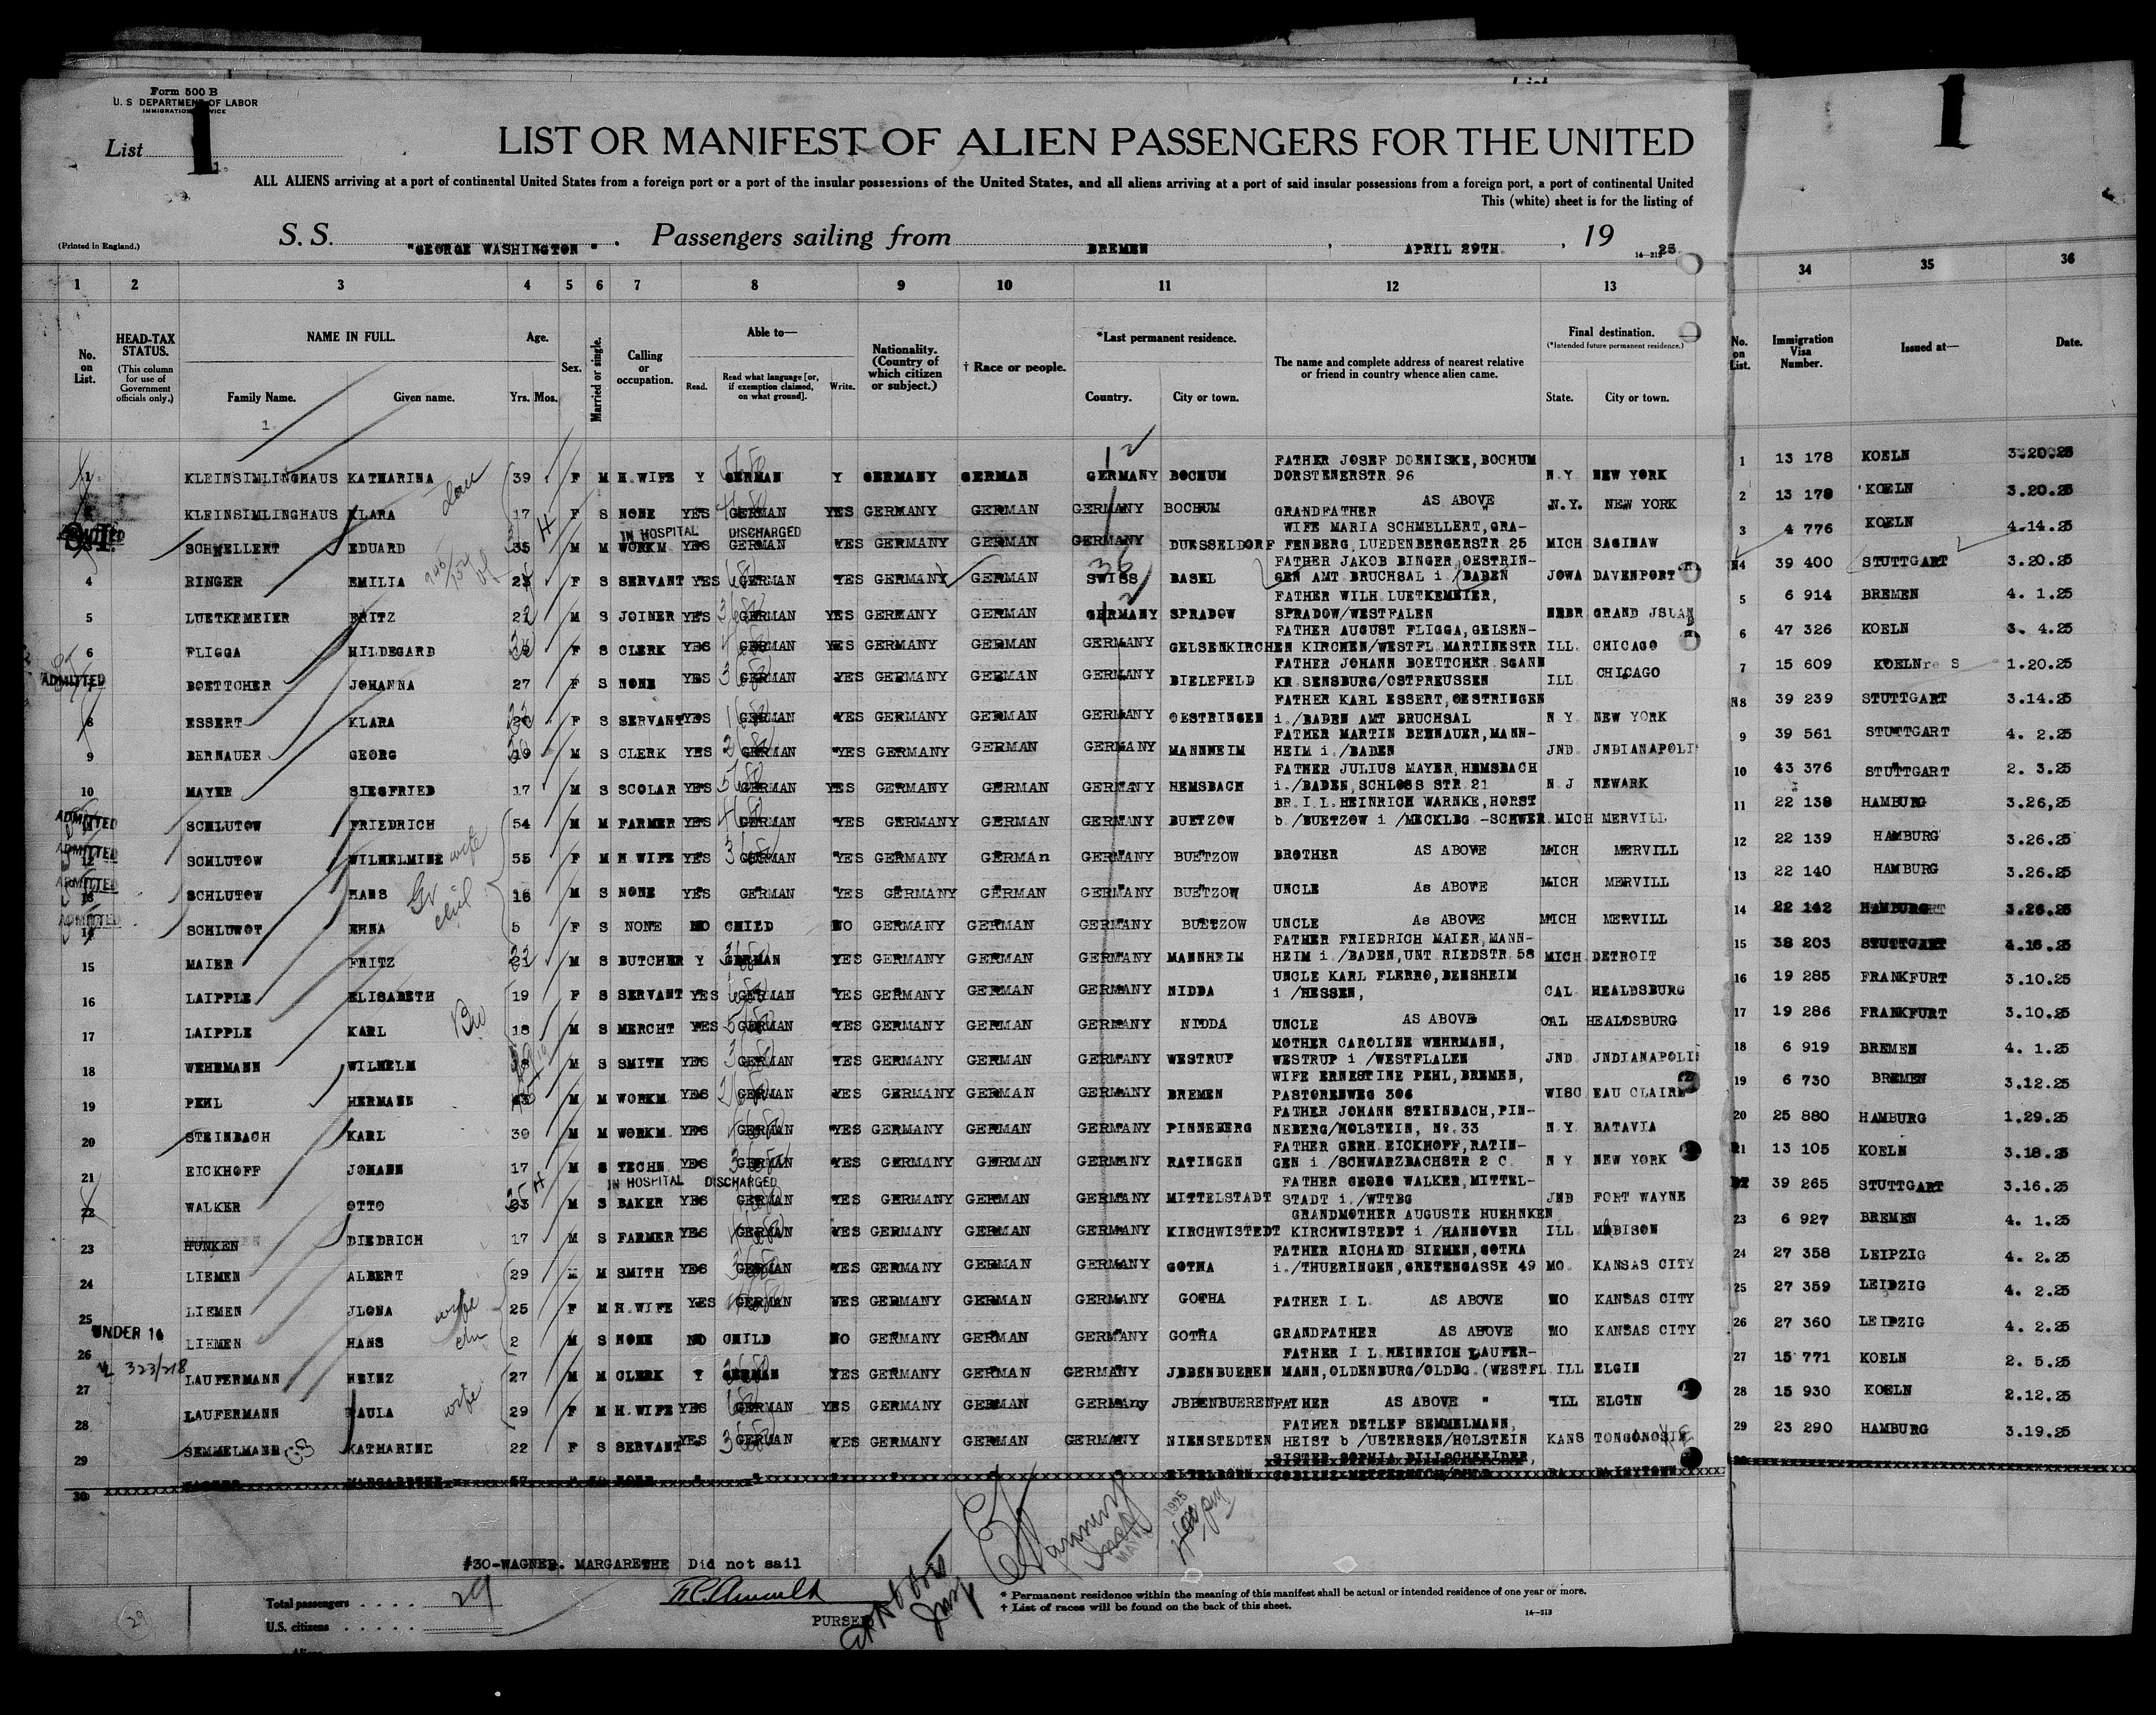 Form 500 B
U. S DEPARTMENT OF LABOR
IMMIGRATION SERVICE
List 1
1
LIST OR MANIFEST OF ALIEN PASSENGERS FOR THE UNITED
ALL ALIENS arriving at a port of continental United States from a foreign port or a port of the insular possessions of the United States, and all aliens arriving at a port of said insular possessions from a foreign port, a port of continental United
This (white) sheet is for the listing of
(Printed in England.)
S. S. "GEORGE WASHINGTON". Passengers sailing from BREMEN, APRIL 29TH., 19 25
1 2 3 4 5 6 7 8 9 10 11 12 13 34 35 36
No. on List.
HEAD-TAX STATUS. (This column for use of Government officials only.)
NAME IN FULL. Family Name. Given name.
Age. Yrs. Mos.
Sex.
Married or single.
Calling or occupation.
Able to— Read. Read what language [or, if exemption claimed, on what ground]. Write.
Nationality. (Country of which citizen or subject.)
† Race or people.
*Last permanent residence. Country. City or town.
The name and complete address of nearest relative or friend in country whence alien came.
Final destination. (*Intended future permanent residence.) State. City or town.
No. on List. Immigration Visa Number. Issued at— Date.
1 KLEINSIMLINGHAUS KATHARINA 39 F M H.WIFE Y GERMAN Y GERMANY GERMAN GERMANY BOCHUM FATHER JOSEF DOENISKE, BOCHUM DORSTENERSTR 96 N.Y NEW YORK 1 13 178 KOELN 3.20.25
KLEINSIMLINGHAUS KLARA 17 F S NONE YES GERMAN YES GERMANY GERMAN GERMANY BOCHUM GRANDFATHER AS ABOVE N.Y. NEW YORK 2 13 179 KOELN 3.20.25
IN HOSPITAL DISCHARGED
SCHMELLERT EDUARD 35 M M WORKM YES GERMAN YES GERMANY GERMAN GERMANY DUESSELDORF WIFE MARIA SCHMELLERT, GRAFENBERG, LUEDENBERGERSTR 25 MICH SAGINAW 3 4 776 KOELN 4.14.25
4 RINGER EMILIA F S SERVANT YES GERMAN YES GERMANY GERMAN SWISS BASEL FATHER JAKOB BINGER, OESTRINGEN AMT BRUCHSAL i./BADEN JOWA DAVENPORT 4 39 400 STUTTGART 3.20.25
5 LUETKEMEIER FRITZ M S JOINER YES GERMAN YES GERMANY GERMAN GERMANY SPRADOW FATHER WILH LUETKEMEIER, SPRADOW/WESTFALEN NEBR GRAND JSLAN 5 6 914 BREMEN 4. 1.25
6 FLIGGA HILDEGARD F S CLERK YES GERMAN YES GERMANY GERMAN GERMANY GELSENKIRCHEN FATHER AUGUST FLIGGA, GELSEN-KIRCHEN/WESTFL MARTINESTR ILL. CHICAGO 6 47 326 KOELN 3. 4.25
ADMITTED
BOETTCHER JOHANNA 27 F S NONE YES GERMAN YES GERMANY GERMAN GERMANY BIELEFELD FATHER JOHANN BOETTCHER SGANN KR SENSBURG/OSTPREUSSEN ILL CHICAGO 7 15 609 KOELN 1.20.25
8 ESSERT KLARA F S SERVANT YES GERMAN YES GERMANY GERMAN GERMANY OESTRINGEN FATHER KARL ESSERT, OESTRINGEN i./BADEN AMT BRUCHSAL N Y. NEW YORK 8 39 239 STUTTGART 3.14.25
9 BERNAUER GEORG M S CLERK YES GERMAN YES GERMANY GERMAN GERMANY MANNHEIM FATHER MARTIN BERNAUER, MANN-HEIM i./BADEN JND. JNDIANAPOLI 9 39 561 STUTTGART 4. 2.25
10 MAYER SIEGFRIED 17 M S SCOLAR YES GERMAN YES GERMANY GERMAN GERMANY HEMSBACH FATHER JULIUS MAYER, HEMSBACH i./BADEN, SCHLOSS STR 21 N.J NEWARK 10 43 376 STUTTGART 2. 3.25
ADMITTED
SCHLUTOW FRIEDRICH 54 M M FARMER YES GERMAN YES GERMANY GERMAN GERMANY BUETZOW BR. I L. HEINRICH WARNKE, HORST b /BUETZOW i /MECKLBG -SCHWER. MICH MERVILL 11 22 138 HAMBURG 3.26,25
ADMITTED
12 SCHLUTOW WILHELMINE wife 55 F M H.WIFE YES GERMAN YES GERMANY GERMAn GERMANY BUETZOW BROTHER AS ABOVE MICH MERVILL 12 22 139 HAMBURG 3.26.25
ADMITTED
13 SCHLUTOW HANS 16 M S NONE YES GERMAN YES GERMANY GERMAN GERMANY BUETZOW UNCLE As ABOVE MICH MERVILL 13 22 140 HAMBURG 3.26.25
ADMITTED
14 SCHLUWOT ERNA 5 F S NONE NO CHILD NO GERMANY GERMAN GERMANY BUETZOW UNCLE As ABOVE MICH MERVILL 14 22 142 HAMBURG 3.26.25
15 MAIER FRITZ M S BUTCHER Y GERMAN YES GERMANY GERMAN GERMANY MANNHEIM FATHER FRIEDRICH MAIER, MANN-HEIM i./BADEN, UNT RIEDSTR.58 MICH DETROIT 15 38 203 STUTTGART 4.16.25
16 LAIPPLE ELISABETH 19 F S SERVANT YES GERMAN YES GERMANY GERMAN GERMANY NIDDA UNCLE KARL FLERRO, BENSHEIM i /HESSEN, CAL HEALDSBURG 16 19 285 FRANKFURT 3.10.25
17 LAIPPLE KARL Bro 18 M S MERCHT YES GERMAN YES GERMANY GERMAN GERMANY NIDDA UNCLE AS ABOVE CAL HEALDSBURG 17 19 286 FRANKFURT 3.10.25
18 WEHRMANN WILHELM M S SMITH YES GERMAN YES GERMANY GERMAN GERMANY WESTRUP MOTHER CAROLINE WEHRMANN, WESTRUP i /WESTFLALEN JND JNDIANAPOLI 18 6 919 BREMEN 4. 1.25
19 PEHL HERMANN M M WORKM YES GERMAN YES GERMANY GERMAN GERMANY BREMEN WIFE ERNESTINE PEHL, BREMEN, PASTORENWEG 306 WISC EAU CLAIRE 19 6 730 BREMEN 3.12.25
20 STEINBACH KARL 30 M M WORKM YES GERMAN YES GERMANY GERMAN GERMANY PINNEBERG FATHER JOHANN STEINBACH, PIN-NEBERG/HOLSTEIN, No.33 N.Y. BATAVIA 20 25 880 HAMBURG 1.29.25
21 EICKHOFF JOHANN 17 M S TECHN YES GERMAN YES GERMANY GERMAN GERMANY RATINGEN FATHER GERH EICKHOFF, RATIN-GEN i./SCHWARZBACHSTR 2 C. N Y NEW YORK 21 13 105 KOELN 3.18.25
IN HOSPITAL DISCHARGED
22 WALKER OTTO M S BAKER YES GERMAN YES GERMANY GERMAN GERMANY MITTELSTADT FATHER GEORG WALKER, MITTEL-STADT i./WTTBG JND FORT WAYNE 39 265 STUTTGART 3.16.25
23 HUNKEN DIEDRICH 17 M S FARMER YES GERMAN YES GERMANY GERMAN GERMANY KIRCHWISTEDT GRANDMOTHER AUGUSTE HUEHNKEN KIRCHWISTEDT i /HANNOVER ILL MADISON 23 6 927 BREMEN 4. 1.25
24 LIEMEN ALBERT 29 M M SMITH YES GERMAN YES GERMANY GERMAN GERMANY GOTHA FATHER RICHARD SIEMEN, GOTHA i./THUERINGEN, GRETENGASSE 49 MO. KANSAS CITY 24 27 358 LEIPZIG 4. 2.25
25 LIEMEN JLONA wife 25 F M H.WIFE YES GERMAN YES GERMANY GERMAN GERMANY GOTHA FATHER I L. AS ABOVE MO KANSAS CITY 25 27 359 LEIPZIG 4. 2.25
UNDER 16
26 LIEMEN HANS 2 M S NONE NO CHILD NO GERMANY GERMAN GERMANY GOTHA GRANDFATHER AS ABOVE MO KANSAS CITY 26 27 360 LEIPZIG 4. 2.25
323/218
27 LAUFERMANN HEINZ 27 M M CLERK Y GERMAN YES GERMANY GERMAN GERMANY JBBENBUEREN FATHER I L. HEINRICH LAUFER-MANN, OLDENBURG/OLDBG.(WESTFL ILL ELGIN 27 15 771 KOELN 2. 5.25
28 LAUFERMANN PAULA wife 29 F M H.WIFE YES GERMAN YES GERMANY GERMAN GERMAny JBBENBUEREN FATHER AS ABOVE " ILL ELGIN 28 15 930 KOELN 2.12.25
29 SEMMELMANN KATHARINE 22 F S SERVANT YES GERMAN YES GERMANY GERMAN GERMANY NIENSTEDTEN FATHER DETLEF SEMMELMANN, HEIST b /UETERSEN/HOLSTEIN KANS TONGONOSIE 29 23 290 HAMBURG 3.19.25
30 WAGNER MARGARETHE 57 F NONE SISTER SOPHIA DILLSCHEIDER,
#30-WAGNER. MARGARETHE Did not sail
MAY 1925
PURSER
Total passengers . . . . 29
U.S. citizens . . . . .
29
* Permanent residence within the meaning of this manifest shall be actual or intended residence of one year or more.
† List of races will be found on the back of this sheet.
14—213